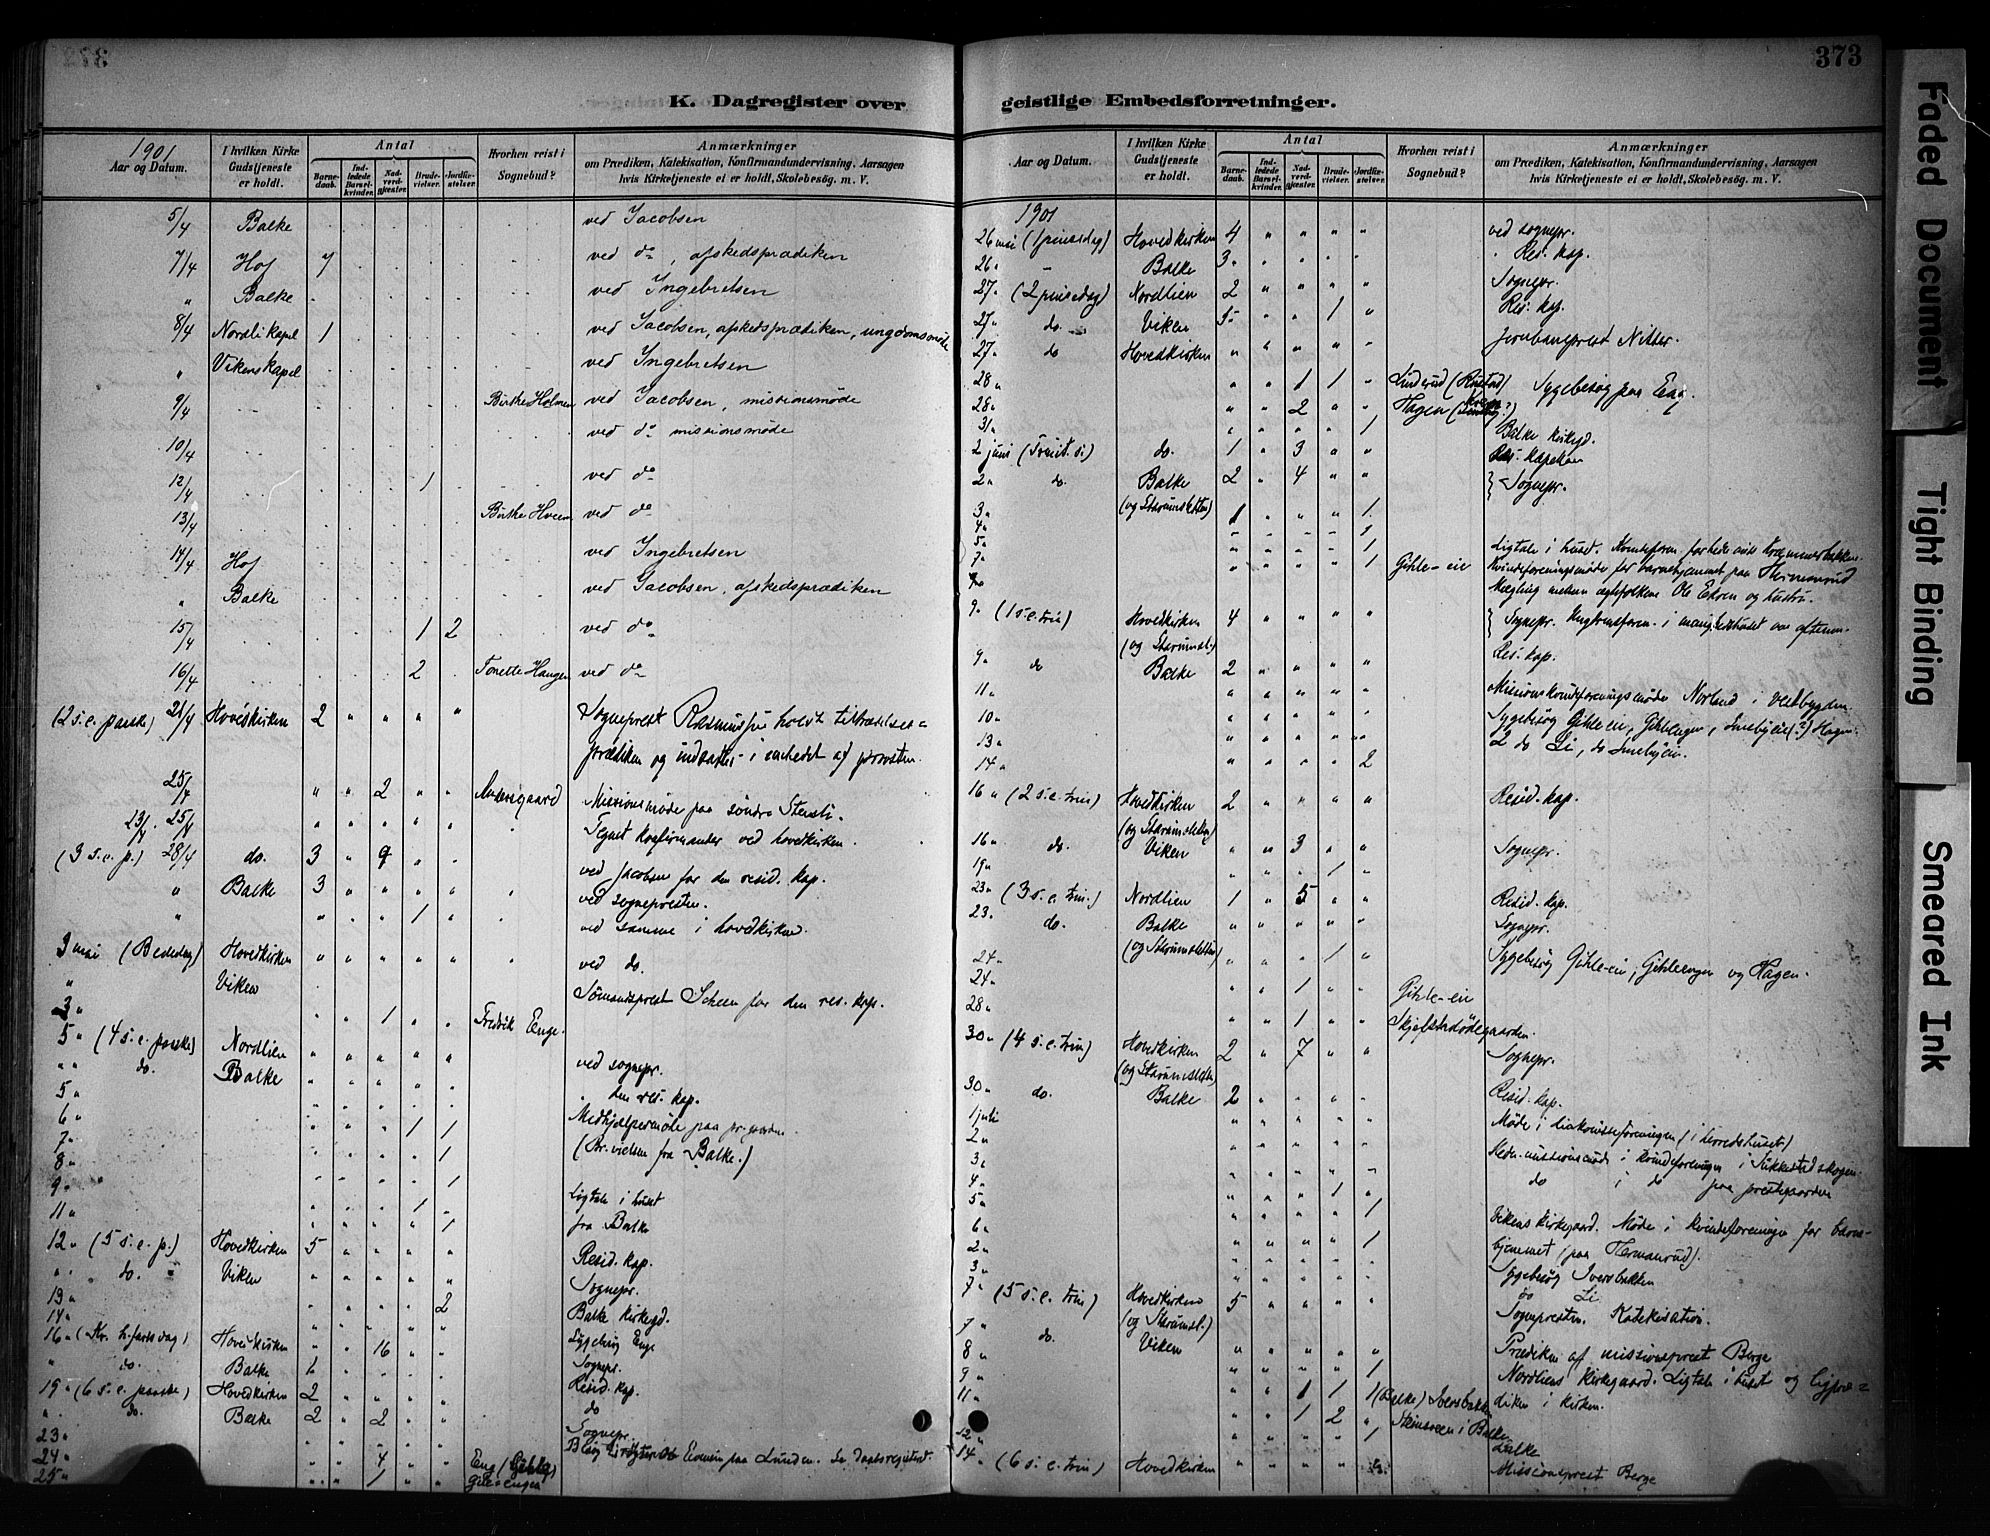 373
K. Dagregister over
1901
Aar og Datum.
I hvilken Kirke Gudstjeneste er holdt.
Antal
Barnedaab.
Indledede Barselkvinder.
Nadverdgjester.
Brudevielser.
Jordfæstelser.
Hvorhen reist i Sognebud?
Anmærkninger
om Prædiken, Katekisation, Konfirmandundervisning, Aarsagen
hvis Kirketjeneste ei er holdt, Skolebesøg. m. V.
5/4 Balke ved Jacobsen
7/4 Hof 7 ved do, afskedsprædiken
" Balke ved Ingebretsen
8/4 Nordli kapel 1 ved Jacobsen, afskedsprædiken, ungdomsmøde
" Vikens kapel ved Ingebretsen
9/4 Birthe Holmen ved Jacobsen, missionsmøde
10/4 ved do missionsmøde
12/4 1 ved do
13/4 Birthe Hveem ved do
14/4 Hof ved Ingebretsen
" Balke ved Jacobsen, afskedsprædiken
15/4 1 2 ved do
16/4 2 Tonette Haugen ved do
(2 s. e. paaske) 21/4 Hovedkirken 2 " " " " Sogneprest Rasmussen holdt tiltrædelses=
prædiken og indsattes i embedet af provsten.
25/4 " " 2 " " Missionsmøde paa søndre Stensli.
23/4. 25/4 Tegnet konfirmander ved hovedkirken.
(3 s. e. p.) 28/4 do. 3 " 9 " " ved Jacobsen for den resid. kap.
" Balke 3 " " " " ved sognepresten.
" " " " 1 " ved samme i hovedkirken.
3 mai (Bededag) Hovedkirken " " " " " ved do.
" Viken Sømandsprest Scheen for den res. kap.
3 " " " 1 " " Fredrik Enge.
5 " (4 s. e. paaske) Nordlien " " " " " ved sognepr.
" " do. Balke " " " " " " den res. kap.
5 " Medhjælpermøde paa pr.gaarden
6 " 1 1 (Br. vielsen fra Balke.)
7 " 1
8 " 1 Ligtale i huset
9 " 1 fra Balke
11 " 1
12 " (5 s. e. p.) Hovedkirken 5 " " " " Resid. kap.
" " do. " Viken " " " " " Sognepr.
13 " 2 Balke kirkegd.
14 " Sygebesøg Enge
16 " (Kr. h.fartsdag) Hovedkirken " " 16 " " Sognepr.
" do. Balke 1 Resid. kap.
19 " (6 s. e. paaske) Hovedkirken 2 " " " " do
" " do. Balke 2 " 2 " " Sognepr.
23 "
24 " " " 4 " " Eng (Gihle)
25 " " " 1 " " Gihleengen
geistlige Embedsforretninger.
Aar og Datum.
I hvilken Kirke Gudstjeneste er holdt.
Antal
Barnedaab.
Indledede Barselkvinder.
Nadverdgjester.
Brudevielser.
Jordfæstelser.
Hvorhen reist i Sognebud?
Anmærkninger
om Prædiken, Katekisation, Konfirmandundervisning, Aarsagen
hvis Kirketjeneste ei er holdt, Skolebesøg. m. V.
1901
26 mai (1 pinsedag) Hovedkirken 4 " " " " ved sognepr.
26 " - Balke 3 " " " " " Res. kap.
27 " (2 pinsedag) Nordlien 2 " " " " Sognepr.
27 " do. Viken 5 " " 1 " Res. kap.
27 " do Hovedkirken " " " " " Jernbaneprest Nitter.
28 " " " 1 1 " Linderud (Rustad) Sygebesøg paa Eng
28 " " " 2 " " Hagen
31 " " " " " 1 Balke kirkegd.
2 juni (Treit. s.) do. 1 " 3 " " Res. kapellan
2 " do. Balke 2 " 4 " " Sognepr.
3 " (og Starumsletten) 1 " " " 1
4 " 1
5 " 1 Ligtale i huset.
7 " 1 Gihle-eie Kvindeforeningsmøde for barnehjemmet paa Hermanrud
Mægling mellem ægtefolkene Ole Ekren og hustru.
9 " (1 s. e. trin) Hovedkirken 4 " " " " Sognepr.
(og Starumsl.)
9 " do Balke 2 " " " " Res. kap.
11 " Missionskvindeforeningsmøde Norland i Vestbygden.
10 " Sygebesøg Gihle-eie, Gihleengen, Smebyeie (?) Hagen
13 " 2 do Li, do Smebyeie.
14 " 2
16 " (2 s. e. trin) Hovedkirken 2 " " " " Resid. kap.
(og Starumsletten)
16 " do. Viken " " 3 " " Sognepr.
19 " 1
23 " (3 s. e. trin.) Nordlien 1 " 5 " " Resid. kap.
23 " do. Balke " " " " " Sognepr.
(og Starumsletten)
24 " 1 Sygebesøg Gihle-eie, Gihleengen og Hagen.
24 " 1 Gihle-eie
28 " 1 Skjelstadødegaarden.
30 " (4 s. e. trin) Hovedkirken 2 " 7 " " Sognepr.
(og Starumsletten)
30 " do. Balke 2 " " " " Resid. kap.
1 juli Møde i diakonisseforeningen (i herredshuset)
2 " Heden. missionsmøde i kvindeforeningen i Sukkestadskogen.
3 " do i do paa prestegaarden
4 " 1
5 " 1 Vikens kirkegaard. Møde i kvindeforeningen for barne-
6 " 1 hjemmet (paa Hermanrud).
2 " Sygebesøg Iversbakken
3 " do Li
7 " (5 s. e. trin) Hovedkirken 5 " " " " Sognepresten. Katekisation.
(og Starumsl.)
7 " do. Viken " " " " " Prædiken af missionsprest Berge
8 " 1 Nordliens kirkegaard. Ligtale i huset og ligpræ=
9 " 1 1 1 (Balke) Iversbakken diken i kirken.
11 " 1 2 " i Balke
12 " 1 Balke
14 " (6 s. e. trin) Hovedkirken Missionsprest Berge
Faded Document
Tight Binding
Smeared Ink